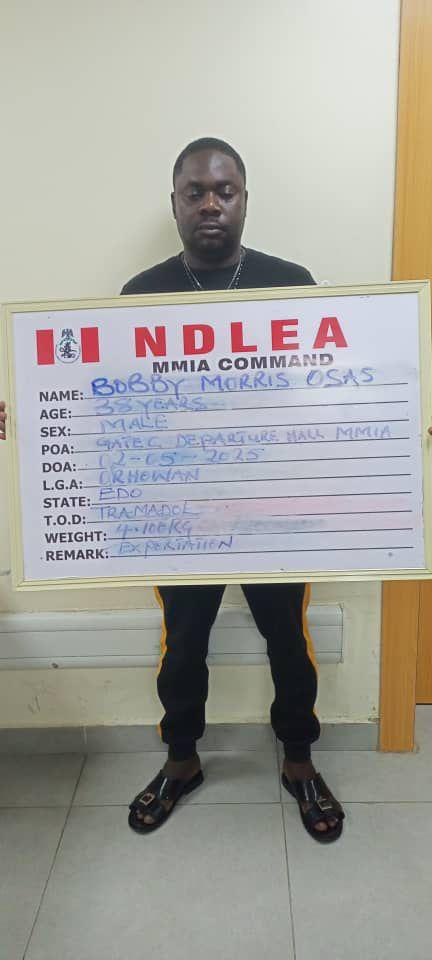 NDLEA
MMIA COMMAND
NAME: BOBBY MORRIS OSAS
AGE: 38 YEARS
SEX: MALE
POA: GATE C DEPARTURE HALL MMIA
DOA: 02-05-2025
L.G.A: ORHOWAN
STATE: EDO
T.O.D: TRAMADOL
WEIGHT: 4.100KG
REMARK: EXPORTATION